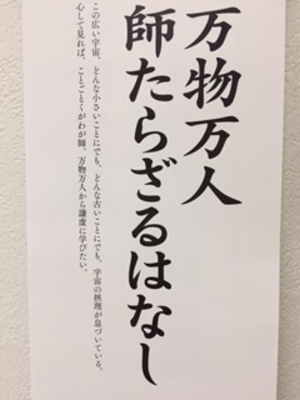 万物万人
師たらざるはなし
この広い宇宙、どんな小さいことにでも、どんな古いことにでも、宇宙の摂理が息づいている。
心して見れば、ことごとくがわが師。万物万人から謙虚に学びたい。